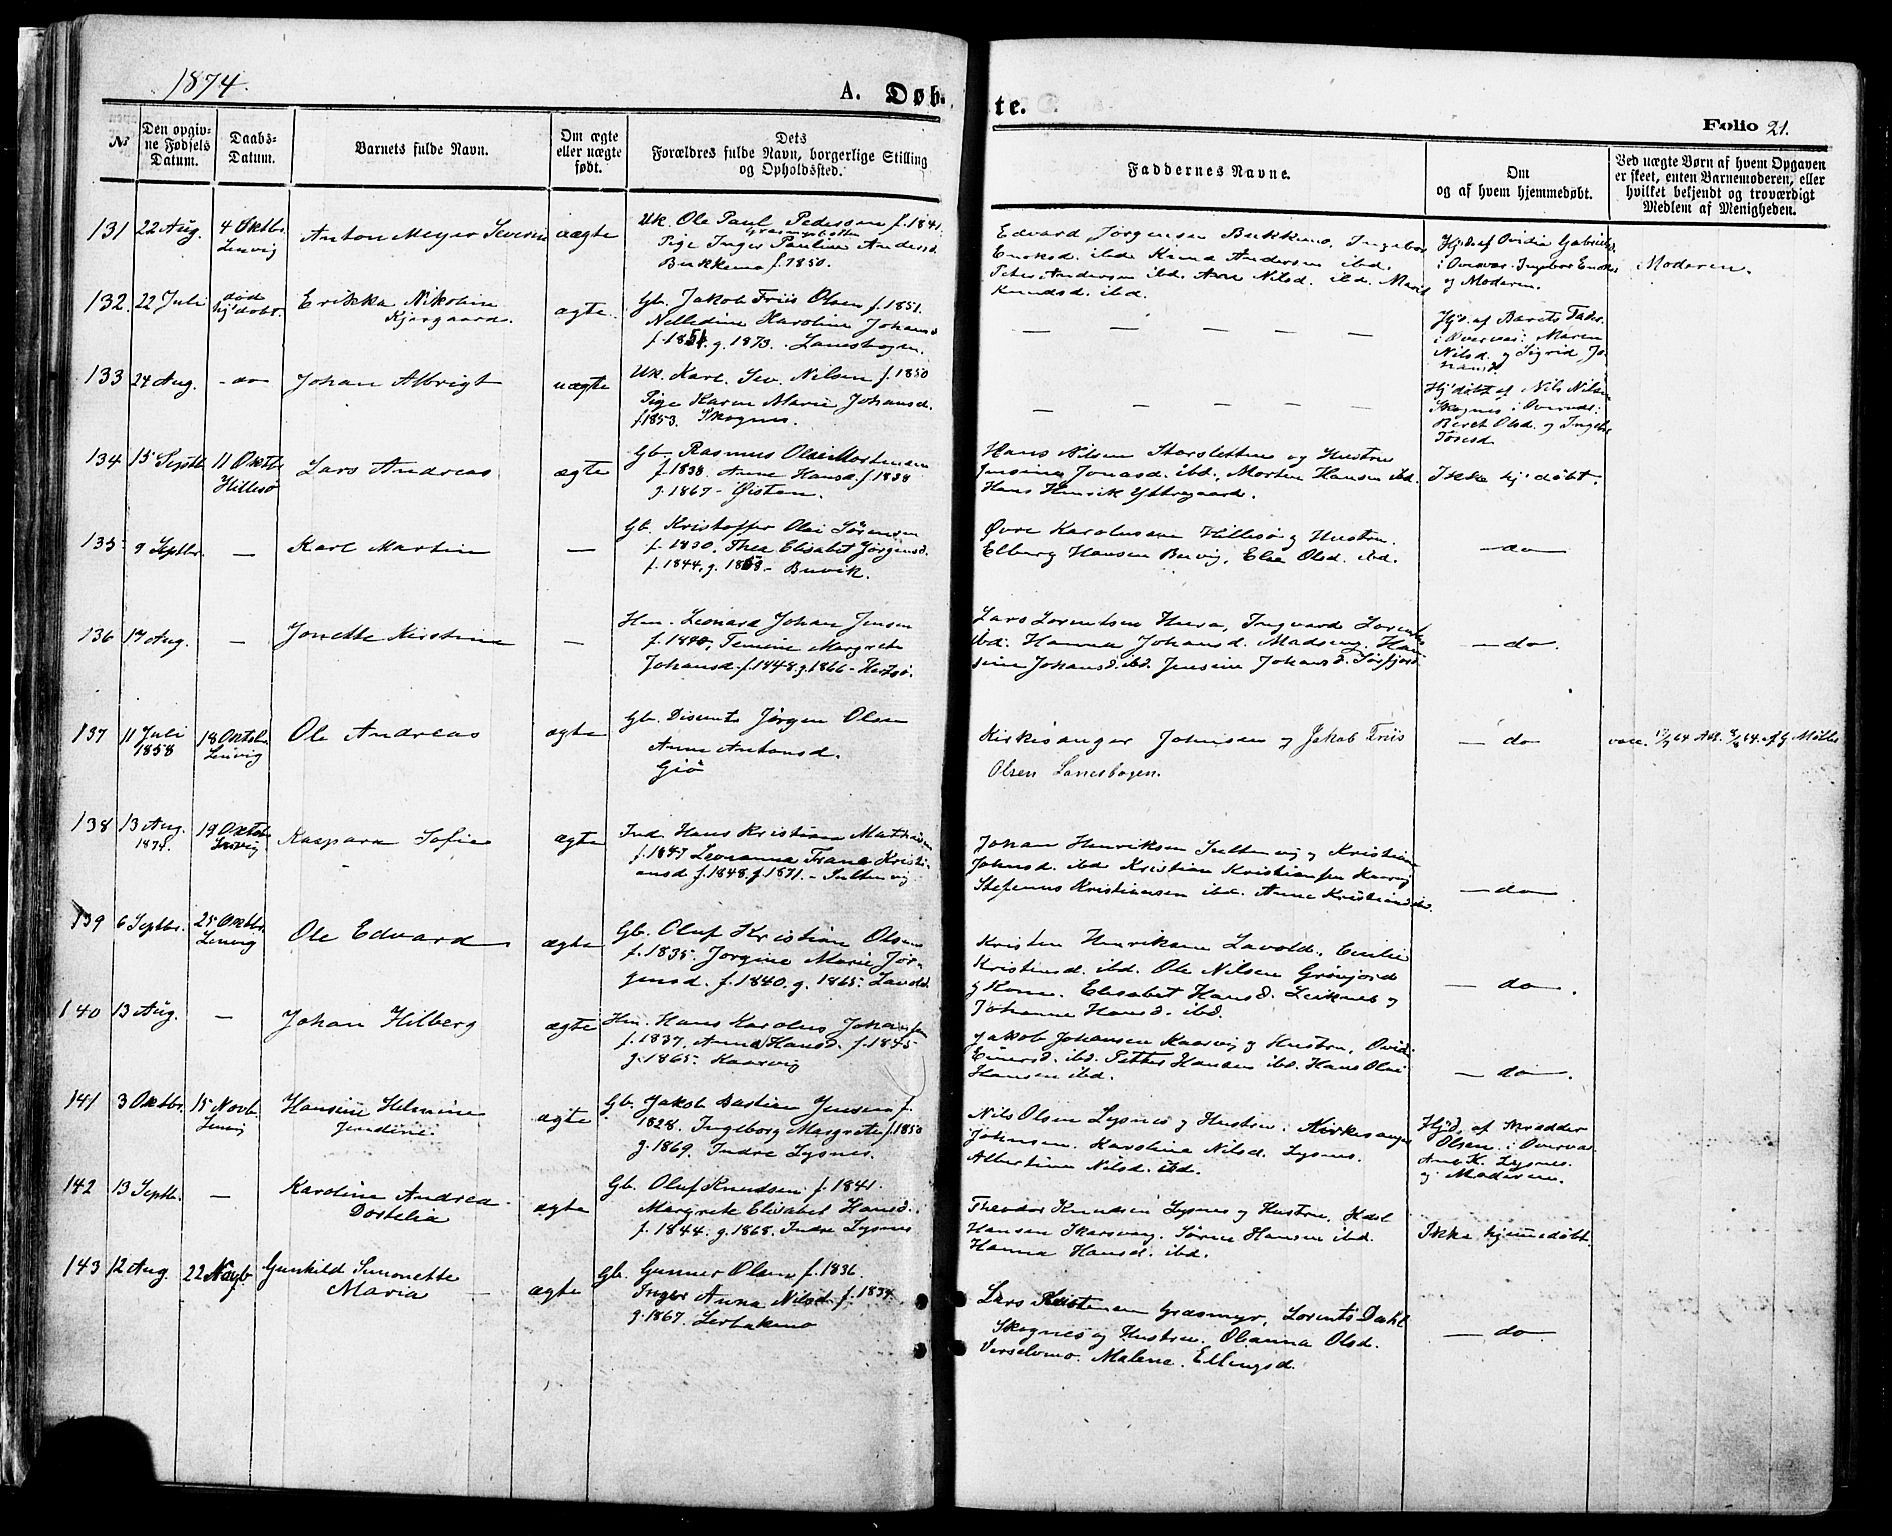 1874.
A. Døb-
te.
Folio 21.
№
Den opgiv-
ne Fødsels
Datum.
Daabs-
Datum.
Barnets fulde Navn.
Om ægte
eller uægte
født.
Dets
Forældres fulde Navn, borgerlige Stilling
og Opholdssted.
Faddernes Navne.
Om
og af hvem hjemmedøbt.
Ved uægte Børn af hvem Opgaven
er skeet, enten Barnemoderen, eller
hvilket bekjendt og troværdigt
Medlem af Menigheden.
131 22 Aug. 4 Oktbr.
Lenvig
Anton Meyer Severin
uægte
Uk. Ole Paul Pedersen f. 1841
Pige Inger Pauline Andersd.
Bukkemo f. 1850.
Edvard Jørgensen Bukkemo, Ingebor
Enoksd. ibd. Knud Andersen ibd.
Peter Andersen ibd. Ane Nilsd. ibd. Marit
Knudsd. ibd.
Hjd. af Ovidia Gabrielsd.
i Overvær: Ingebor Enoks
og Moderen.
Moderen.
132. 22 Juli død
hj'døbt.
Erikka Nikoline
Kjergaard.
ægte
Gb. Jakob Friis Olsen f. 1851.
Nelledine Karoline Johansd
f. 1851. g. 1873. Lanesbogen.
— — — — —
Hjd. af Barets Fader
i Overvær: Maren
Nilsd. og Sigrid Jo-
hansd.
133 24 Aug. - do
Johan Albrigt
uægte
Uk. Karl Sev. Nilsen f. 1850
Pige Karen Marie Johansd.
f. 1853. Skognes.
— — — — —
Hj'døbt af Nils Nilsen
Skognes i Overvær:
Beret Olsd. og Ingebor
Toresd.
134 15 Septb. 11 Oktb.
Hillesø
Lars Andreas
ægte
Gb. Rasmus Olai Mortensen
f. 1838 Anne Hansd. f. 1838
g. 1867 - Øisten.
Hans Nilsen Storsletten og Hustru
Jensine Jonasd. ibd., Morten Hansen ibd.
Hans Henrik Yttregaard.
Ikke hj'døbt.
135 9 Septbr. —
Karl Martin
—
Gb. Kristoffer Olai Sørensen
f. 1830. Thea Elisabet Jørgensd.
f. 1844, g. 1868 - Buvik.
Øvre Karolussen Hillesø og Hustru.
Elberg Hansen Buvig, Else Olsd. ibd.
— do —
136 17 Aug. —
Jonette Kirstine
—
Hm. Leonard Johan Jensen
f. 1840, Temine Margrete
Johansd. f. 1848. g. 1866 - Hertsø.
Lars Lorentsen Hera, Ingvard Lorents.
ibd. Hanna Johansd. Madseng. Han
sine Johansd. ibd. Jensine Johansd. Sørfjord
— do.
137 11 Juli
1858
18 Oktbr
Lenvig
Ole Andreas
ægte
Gb. Disents Jørgen Olsen
Anne Antonsd.
Giø
Kirkesanger Johnsen og Jakob Friis
Olsen Lanesbogen.
— do
vacc. 17/9 64 Att. 8/8 64. af G. Møller
138 13 Aug.
1874.
19 Oktob
Lenvig
Kaspara Sofie
ægte
Ind. Hans Kristian Mathisen
f. 1847 Leonanna Frans Kristi-
ansd f. 1848. g. 1871. - Sultenvig
Johan Henriksen Sultenvig og Kristian
Johnsd. ibd. Kristian Kristiansen Kaarvig
Stefanus Kristiansen ibd. Anne Kristiansd ibd.
— do —
139 6 Septbr. 25 Oktbr.
Lenvig
Ole Edvard
ægte
Gb. Oluf Kristian Olsen
f. 1835. Jørgine Marie Jør-
gensd. f. 1840. g. 1865. Lavold.
Kristen Henriksen Lavold. Emilie
Kristensd. ibd. Ole Nilsen Grønjord
og Kone. Elisabet Hansd. Leiknes og
Johanna Hansd. ibd.
— do —
140 13 Aug. —
Johan Hilberg
ægte
Hm. Hans Karolus Johansen
f. 1837. Anna Hansd. f. 1845
g. 1865. Kaarvig
Jakob Johansen Kaarvig og Hustru, Ovidi
Einersd. ibd. Petter Hansen ibd. Hans Olai
Hansen ibd.
— do —
141 3 Oktbr. 15 Novb.
Lenvig
Hansine Helmine
Jendine
ægte
Gb. Jakob Bastian Jensen f.
1828. Ingeborg Margrete f. 1850
g. 1869. Indre Lysnes.
Nils Olsen Lysnes og Hustru. Kirkesanger
Johnsen. Karoline Nilsd. Lysnes.
Albertine Nilsd. ibd.
Hjd. af Skrædder
Olsen i Overvær
Ane K. Lysnes.
og Moderen.
142 13 Septb. —
Karoline Andrea
Dortelia
ægte
Gb. Oluf Knudsen f. 1841.
Margrete Elisabet Hansd.
f. 1844. g. 1868. Indre Lysnes
Theodor Knudsen Lysnes og Hustru, Karl
Hansen Skarsvaag. Søren Hansen ibd.
Hanna Hansd. ibd.
Ikke hjemmedøbt.
143 12 Aug. 22 Novb
Gunhild Simonette
Maria
ægte
Gb. Gunner Olsen f. 1836.
Inger Anna Nilsd. f. 1834.
g. 1867. Lerbakmo
Lars Kristensen Græsmyr, Lorents Dahl
Skognes og Hustru. Oleanna Olsd.
Malene Ellingsd.
— do —